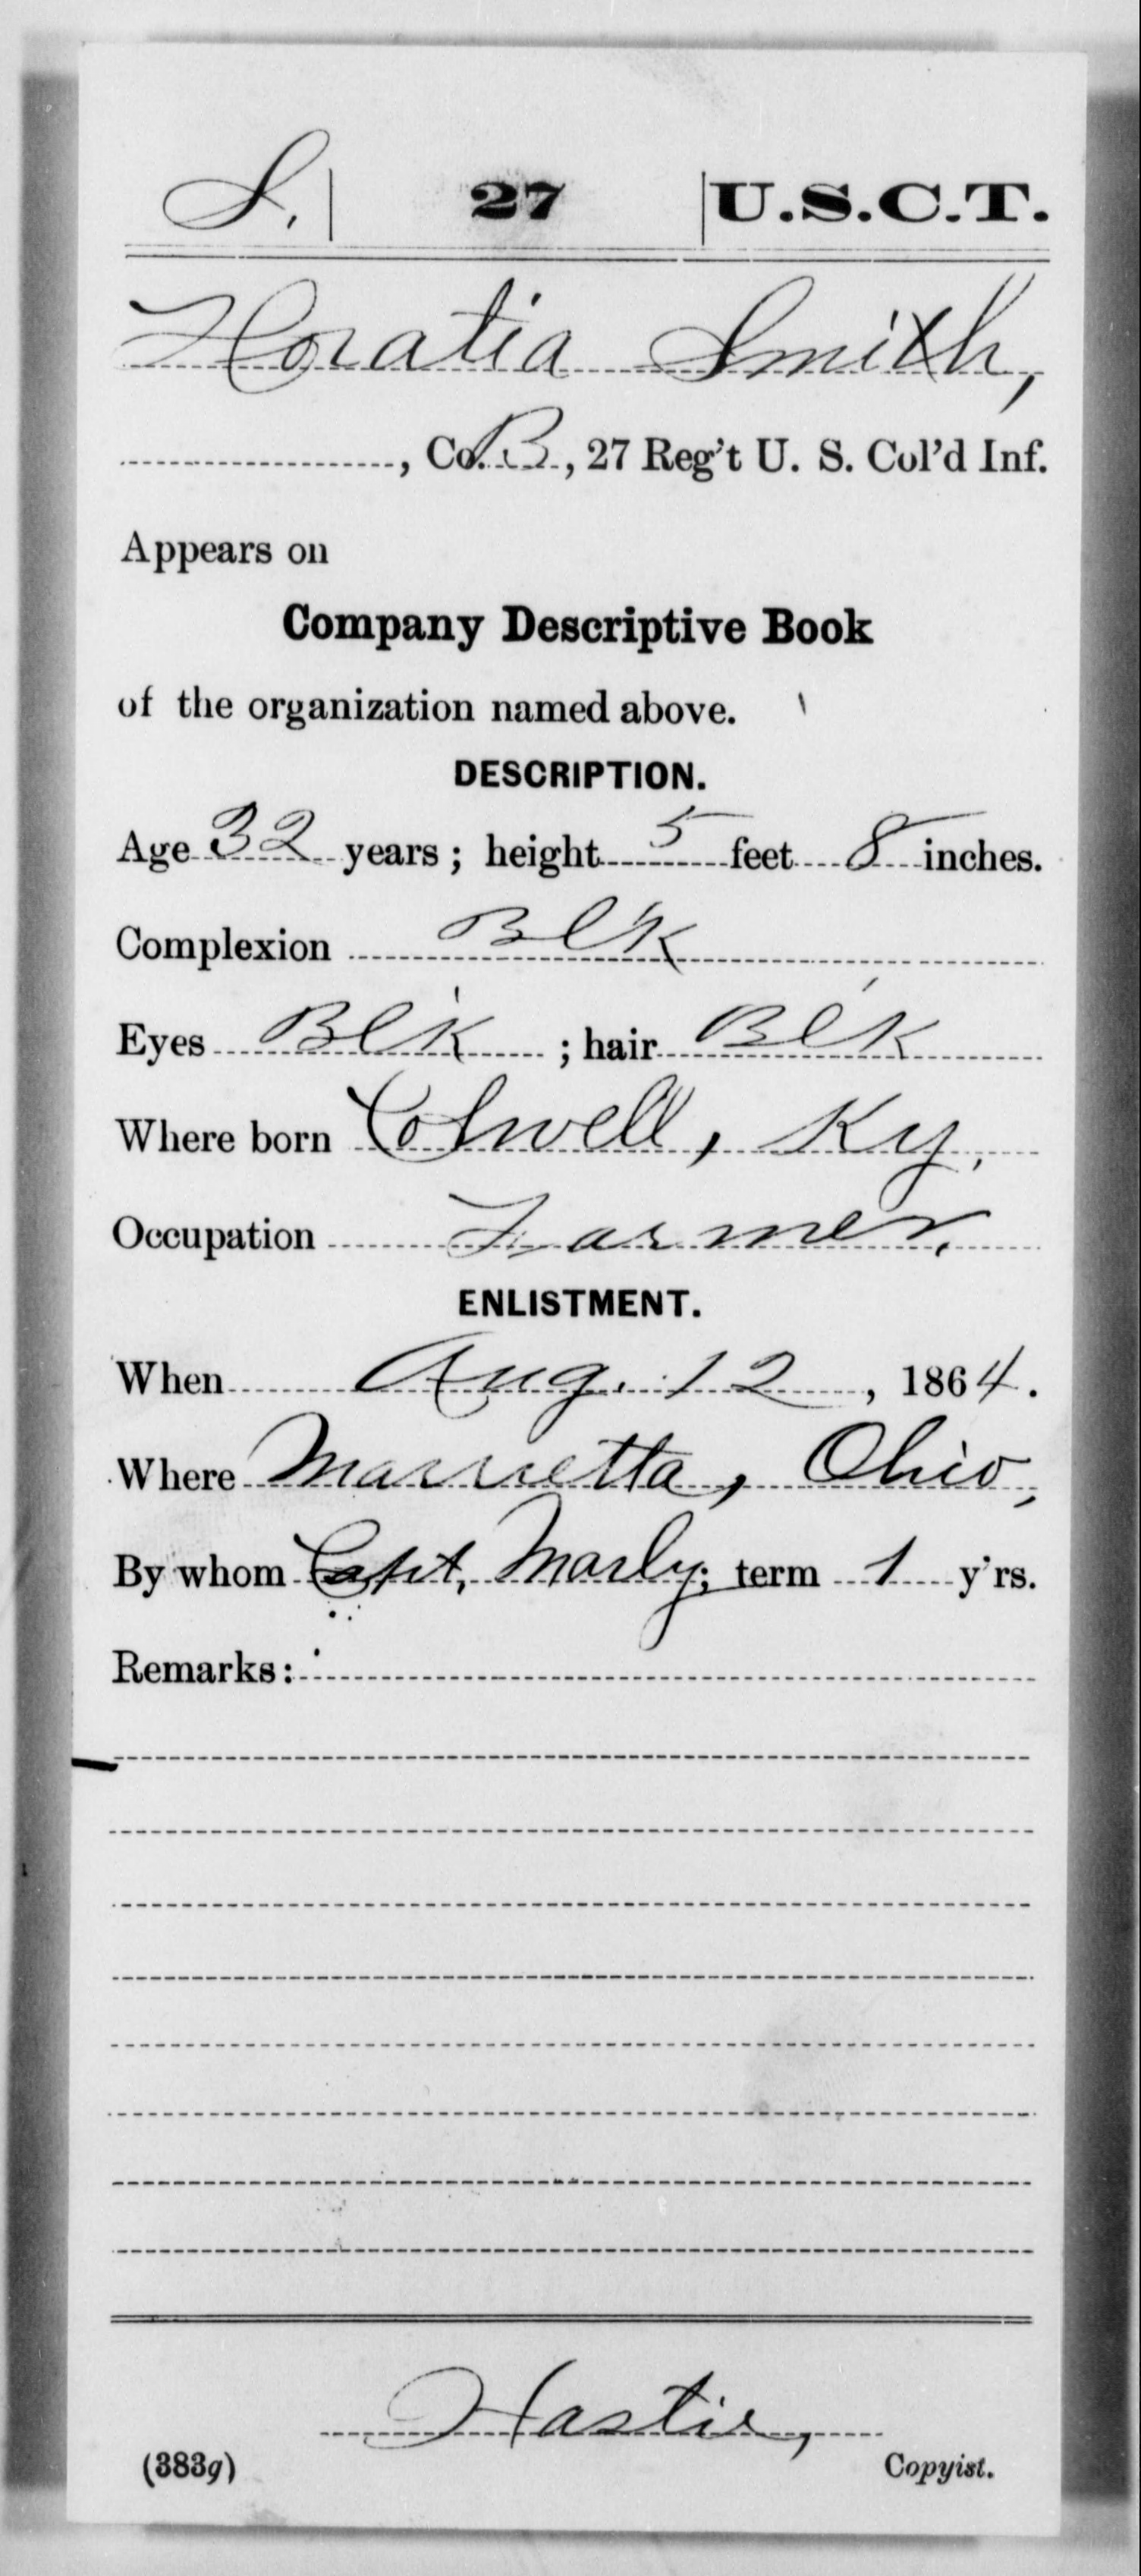 S. | 27 | U.S.C.T.
Horatia Smith,
, Co. B, 27 Reg't U. S. Col'd Inf.
Appears on
Company Descriptive Book
of the organization named above.
DESCRIPTION.
Age 32 years; height 5 feet 8 inches.
Complexion Blk
Eyes Blk ; hair Blk
Where born Colwell, Ky,
Occupation Farmer,
ENLISTMENT.
When Aug. 12, 1864.
Where Marrietta, Ohio,
By whom Capt. Marly; term 1 y'rs.
Remarks:
Hastie,
(383g) Copyist.